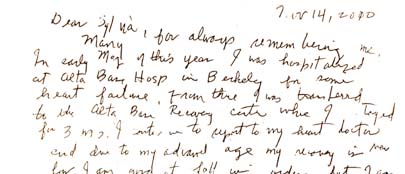 Nov 14, 2000
Dear Sylvia, for always remembering me.
Many
In early May of this year I was hospitalized
at Alta Bates Hosp in Berkeley for some
heart failure. From there I was transferred
to the Alta Bates Recovery center where I stayed
for 3 mos. I to report to my heart doctor
and due to my advanced age my recovery is now
low I am not at full but I am